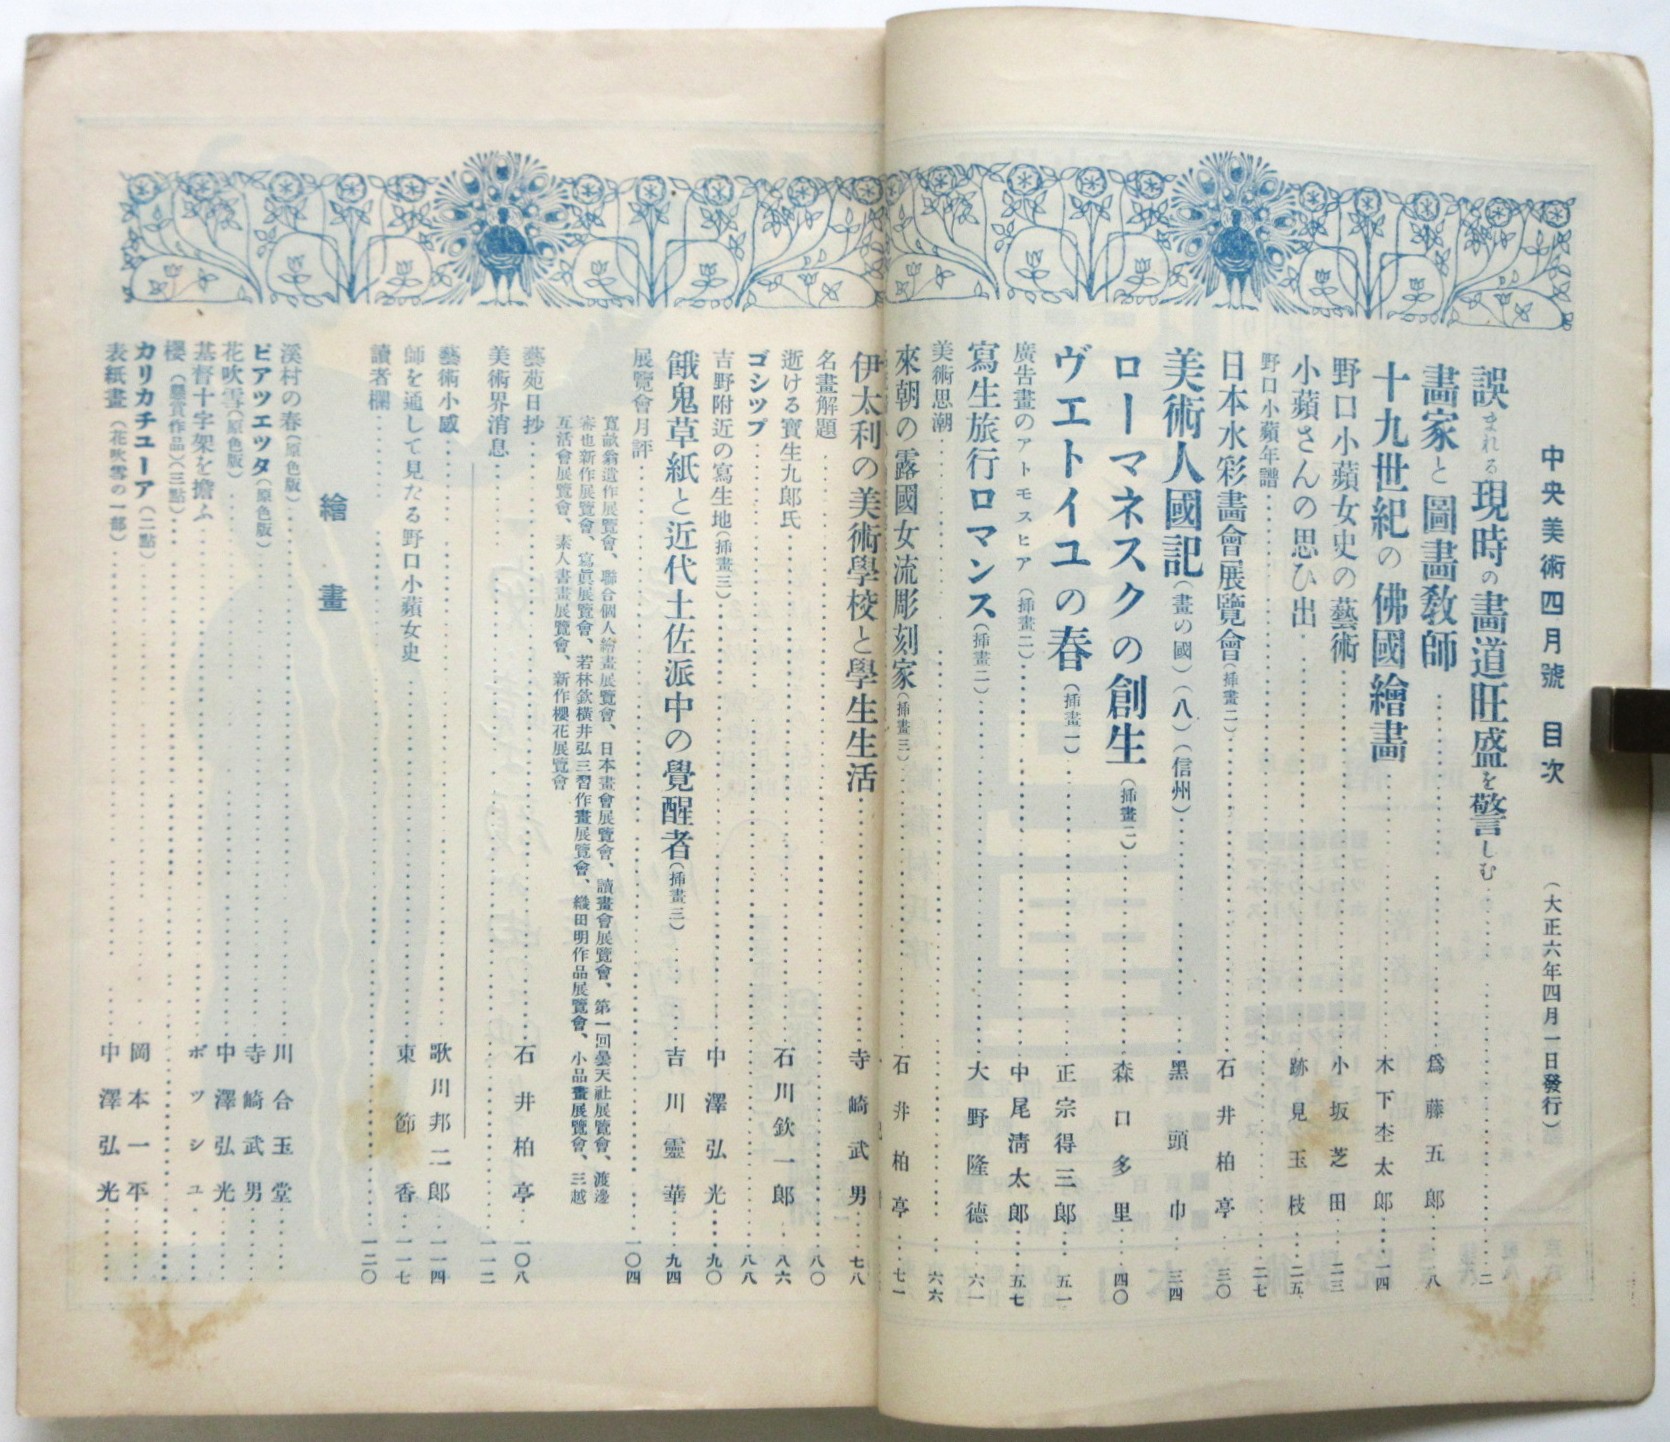 中央美術四月號 目次 (大正六年四月一日發行)
誤まれる現時の畫道旺盛を警しむ……二
畫家と圖畫敎師……爲藤五郎……八
十九世紀の佛國繪畫……木下杢太郎……一四
野口小蘋女史の藝術……小坂芝田……二三
小蘋さんの思ひ出……跡見玉枝……二五
野口小蘋年譜……二七
日本水彩畫會展覽會(挿畫二)……石井柏亭……三〇
美術人國記(畫の國)(八)(信州)……黑頭巾……三四
ローマネスクの創生(挿畫二)……森口多里……四〇
ヴエトイユの春(挿畫一)……正宗得三郎……五一
廣告畫のアトモスヒア(挿畫二)……中尾淸太郎……五七
寫生旅行ロマンス(挿畫二)……大野隆德……六一
美術思潮……六六
來朝の露國女流彫刻家(挿畫三)……石井柏亭……七一
伊太利の美術學校と學生生活……寺崎武男……七八
名畫解題……八〇
逝ける寶生九郎氏……石川欽一郎……八六
ゴシツプ……八八
吉野附近の寫生地(挿畫三)……中澤弘光……九〇
餓鬼草紙と近代土佐派中の覺醒者(挿畫三)……吉川靈華……九四
展覽會月評……一〇四
寬畝翁遺作展覽會、聯合個人繪畫展覽會、日本畫會展覽會、讀畫會展覽會、第一回曇天社展覽會、渡邊
審也新作展覽會、寫眞展覽會、若林欽橫井弘三習作畫展覽會、織田明作品展覽會、小品畫展覽會、三越
互活會展覽會、素人書畫展覽會、新作櫻花展覽會
藝苑日抄……石井柏亭……一〇八
美術界消息……一一二
藝術小感……歌川邦二郎……一一四
師を通して見たる野口小蘋女史……東節香……一一七
讀者欄……一二〇
繪畫
溪村の春(原色版)……川合玉堂……
ピアツエツタ(原色版)……寺崎武男……
花吹雪(原色版)……中澤弘光……
基督十字架を擔ふ……ボツシユ……
櫻(懸賞作品)(三點)……
カリカチユーア(二點)……岡本一平……
表紙畫(花吹雪の一部)……中澤弘光……